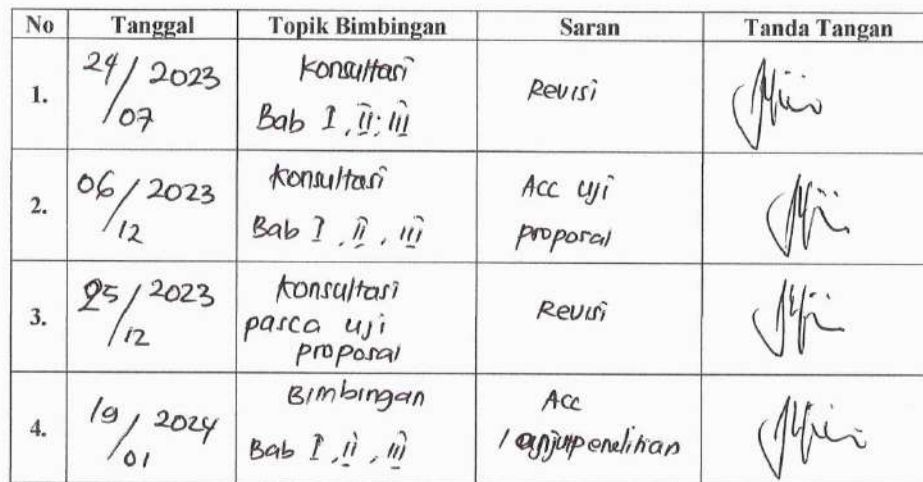 No Tanggal Topik Bimbingan Saran Tanda Tangan
1. 24/07 2023 Konsultasi Bab I, II, III Revisi
2. 06/12 2023 Konsultasi Bab I, II, III Acc uji proposal
3. 25/12 2023 Konsultasi pasca uji proposal Revisi
4. 19/01 2024 Bimbingan Bab I, II, III Acc lanjut penelitian